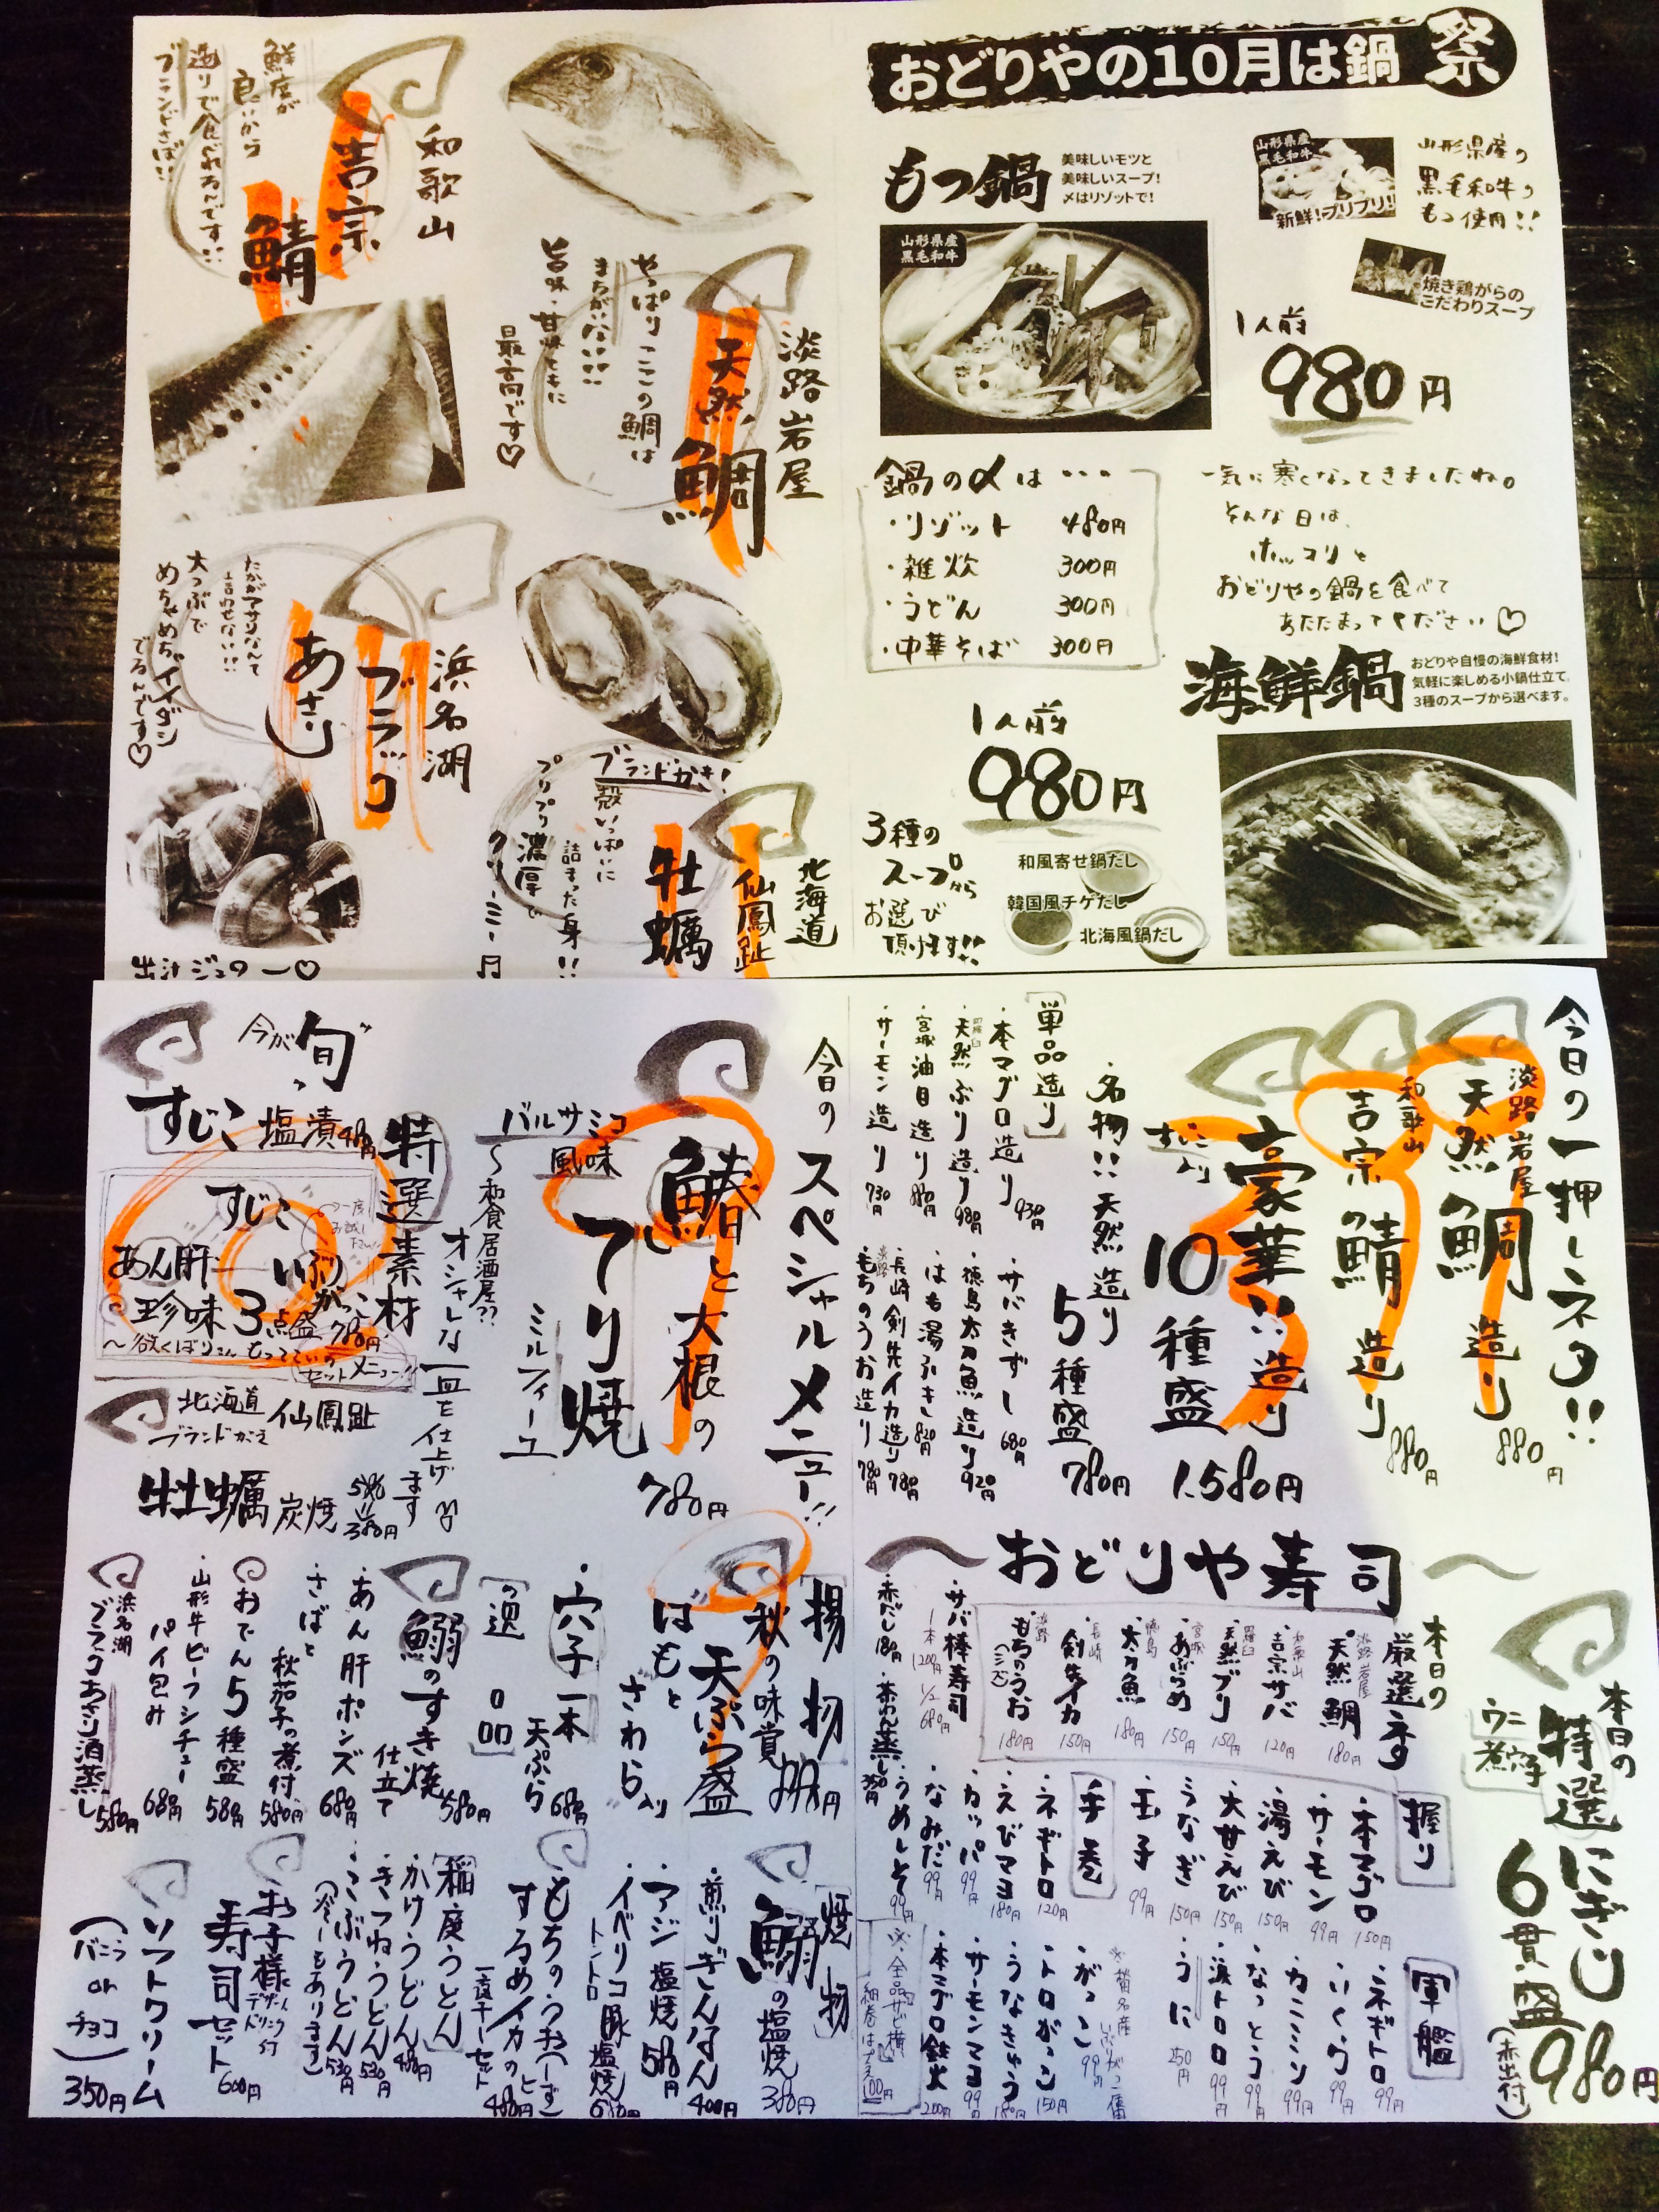 おどりやの10月は鍋祭
もつ鍋
美味しいモツと
美味しいスープ!
〆はリゾットで!
山形県産
黒毛和牛
新鮮!プリプリ!
山形県産の
黒毛和牛の
もつ使用!!
山形県産
黒毛和牛
焼き鶏がらの
こだわりスープ
1人前
980円
鍋の〆は…
・リゾット 480円
・雑炊 300円
・うどん 300円
・中華そば 300円
一気に寒くなってきましたね。
そんな日は、
ホッコリと
おどりやの鍋を食べて
あたたまってください♡
海鮮鍋
おどりや自慢の海鮮食材!
気軽に楽しめる小鍋仕立て。
3種のスープから選べます。
1人前
980円
3種の
スープから
お選び
頂けます!!
和風寄せ鍋だし
韓国風チゲだし
北海風鍋だし
淡路岩屋
天然
鯛
やっぱりここの鯛は
まちがいない!!!
旨味・甘味ともに
最高です♡
和歌山
吉宗
鯖
鮮度が
良いから
造りで食べれるんです!!
ブランドさば!!
北海道
仙鳳趾
牡蠣
ブランドかき!
殻いっぱいに
詰まった身!!
プリプリ濃厚で
クリーミー
浜名湖
ブラック
あさり
たかがアサリなんて
言わせない!!
大つぶで
めちゃめちゃイイダシ
でるんです♡
出汁ジュワー♡
今日の一押しネタ!!
淡路岩屋
天然鯛造り 880円
和歌山
吉宗鯖造り 880円
豪華!!造り
すじこ入り
10種盛 1.580円
・名物!!天然造り
5種盛 780円
単品造り
・本マグロ造り 930円
・天然ぶり造り 980円
・宮城油目造り 880円
・サーモン造り 730円
・サバきずし 680円
・徳島太刀魚造り 920円
・はも湯ぶき 820円
・長崎剣先イカ造り 780円
・淡路もちのうお造り 780円
今日のスペシャルメニュー!!
鰆と大根の
てり焼
ミルフィーユ
780円
バルサミコ
風味
〜和食居酒屋??
オシャレな一皿を仕上げます
今が旬っ
すじこ塩漬 480円
特選素材
すじこ
いぶりがっこ
あん肝
珍味3点盛 780円
〜欲くばりさんもってこいの
セットメニュー!!
北海道
ブランドがき
仙鳳趾
牡蠣炭焼
380円
〜おどりや寿司〜
本日の
特選にぎり
ウニ
煮穴子
6貫盛
980円
(赤出付)
本日の
厳選ネタ
淡路岩屋
天然鯛 180円
和歌山
吉宗サバ 120円
羅臼
天然ブリ 150円
宮城
あぶらめ 150円
徳島
太刀魚 180円
長崎
剣先イカ 150円
淡路
もちのうお 180円
・サバ棒寿司
1本 1200円 1/2 680円
・赤だし 180円
・茶わん蒸し 350円
握り
・本マグロ 150円
・サーモン 99円
・湯えび 150円
・大甘えび 150円
・うなぎ 150円
・玉子 99円
手巻
・ネギトロ 120円
・えびマヨ 180円
・カッパ 99円
・なみだ 99円
・うめしそ 99円
軍艦
・ネギトロ 99円
・いくら 99円
・カニミソ 99円
・なっとう 99円
・浜トロ 99円
・うに 250円
・がっこ 99円
・トロがっこ 150円
・うなきゅう 180円
・サーモンマヨ 99円
・本マグロ鉄火 200円
揚物
秋の味覚
天ぷら盛
はもと
さわら入り
・穴子一本
天ぷら 680円
逸品
鰯のすき焼
仕立て 580円
・あん肝ポンズ 680円
・さばと
秋茄子の煮付 580円
おでん5種盛 580円
・山形牛ビーフシチュー
パイ包み 680円
浜名湖
ブラックあさり酒蒸し 580円
焼物
鰯の塩焼 380円
煎りぎんなん 400円
アジ塩焼 580円
イベリコ豚塩焼
トントロ 680円
もちのうお
するめイカの
一夜干しセット 480円
稲庭うどん
・かけうどん 480円
・きつねうどん 530円
・こぶうどん 530円
(冷しもあります)
お子様
寿司セット 600円
ソフトクリーム
(バニラ or チョコ) 350円